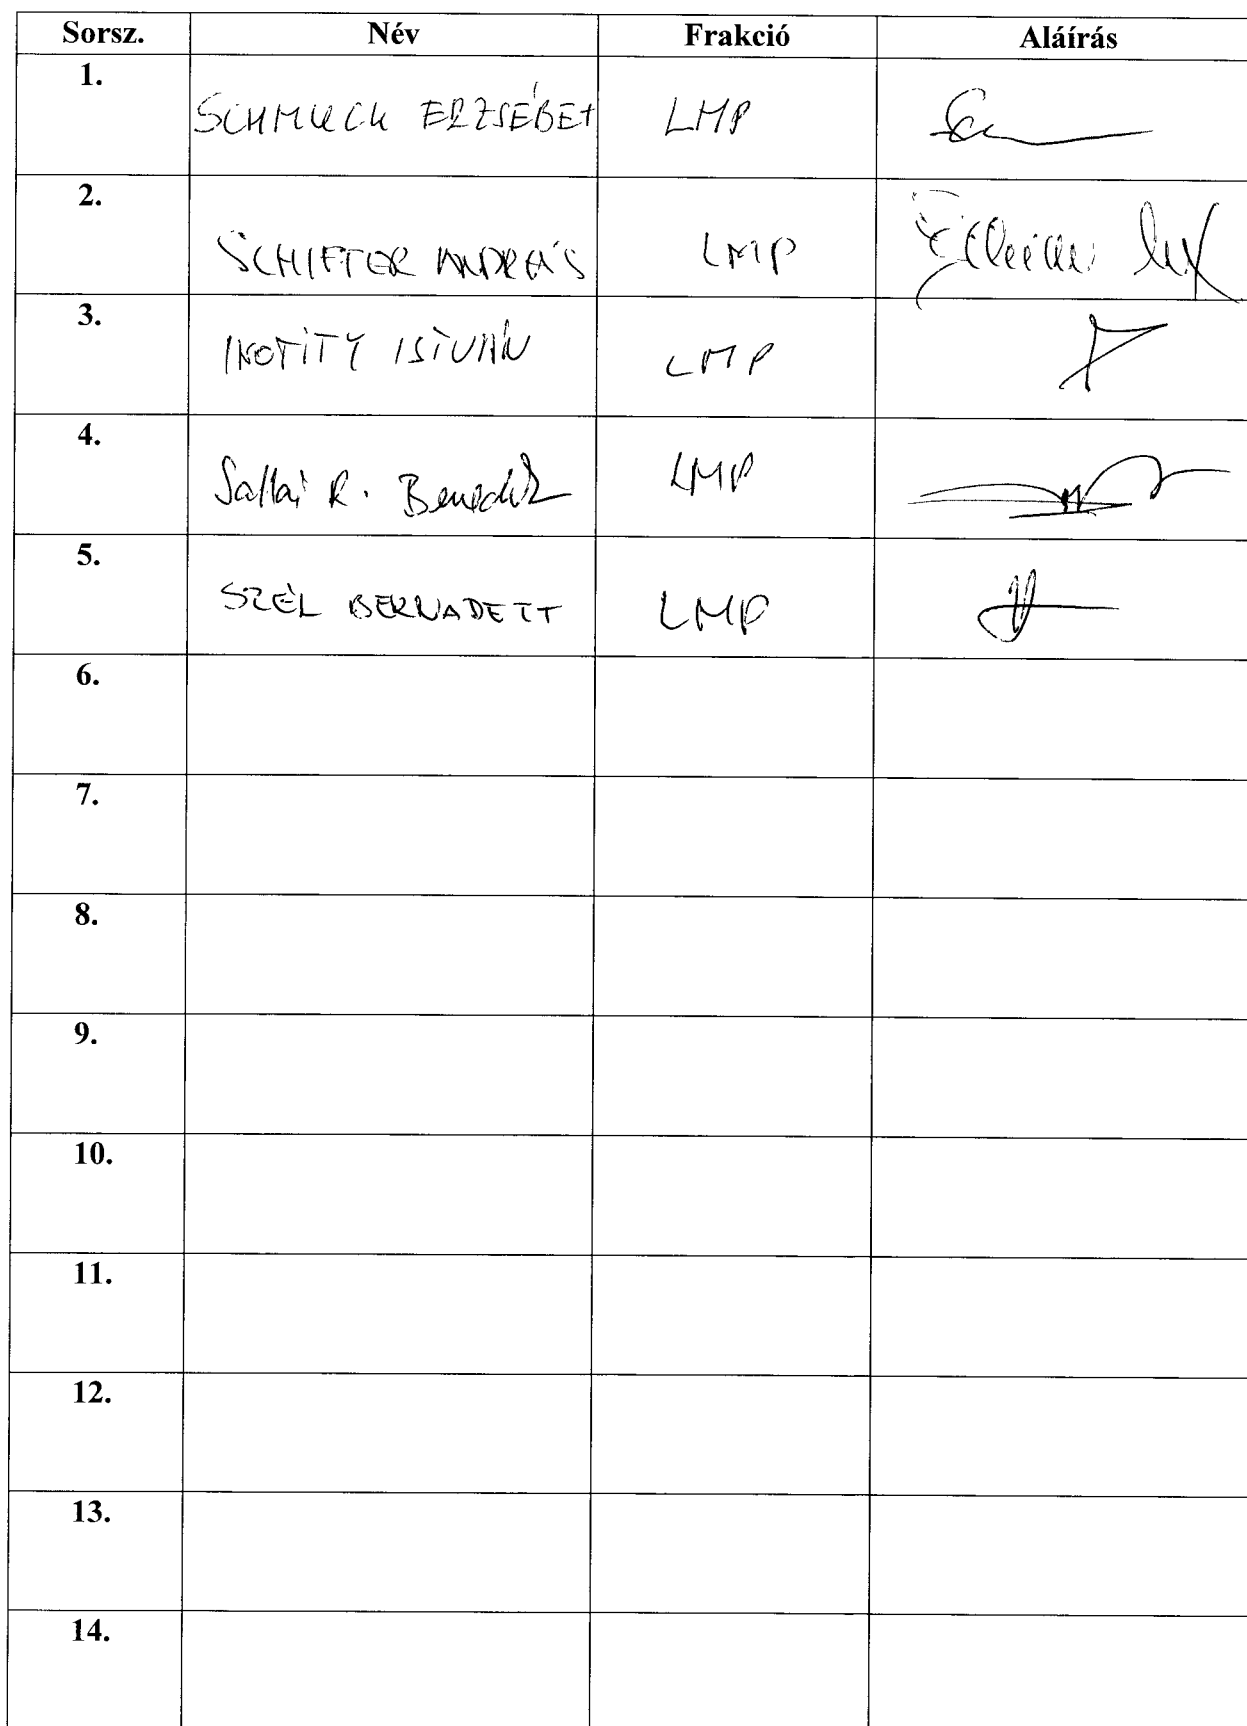 Sorsz. Név Frakció Aláírás
1. SCHMUCK ERZSÉBET LMP
2. SCHIFFER ANDRÁS LMP
3. IKOTITY ISTVÁN LMP
4. Sallai R. Benedek LMP
5. SZÉL BERNADETT LMP
6.
7.
8.
9.
10.
11.
12.
13.
14.